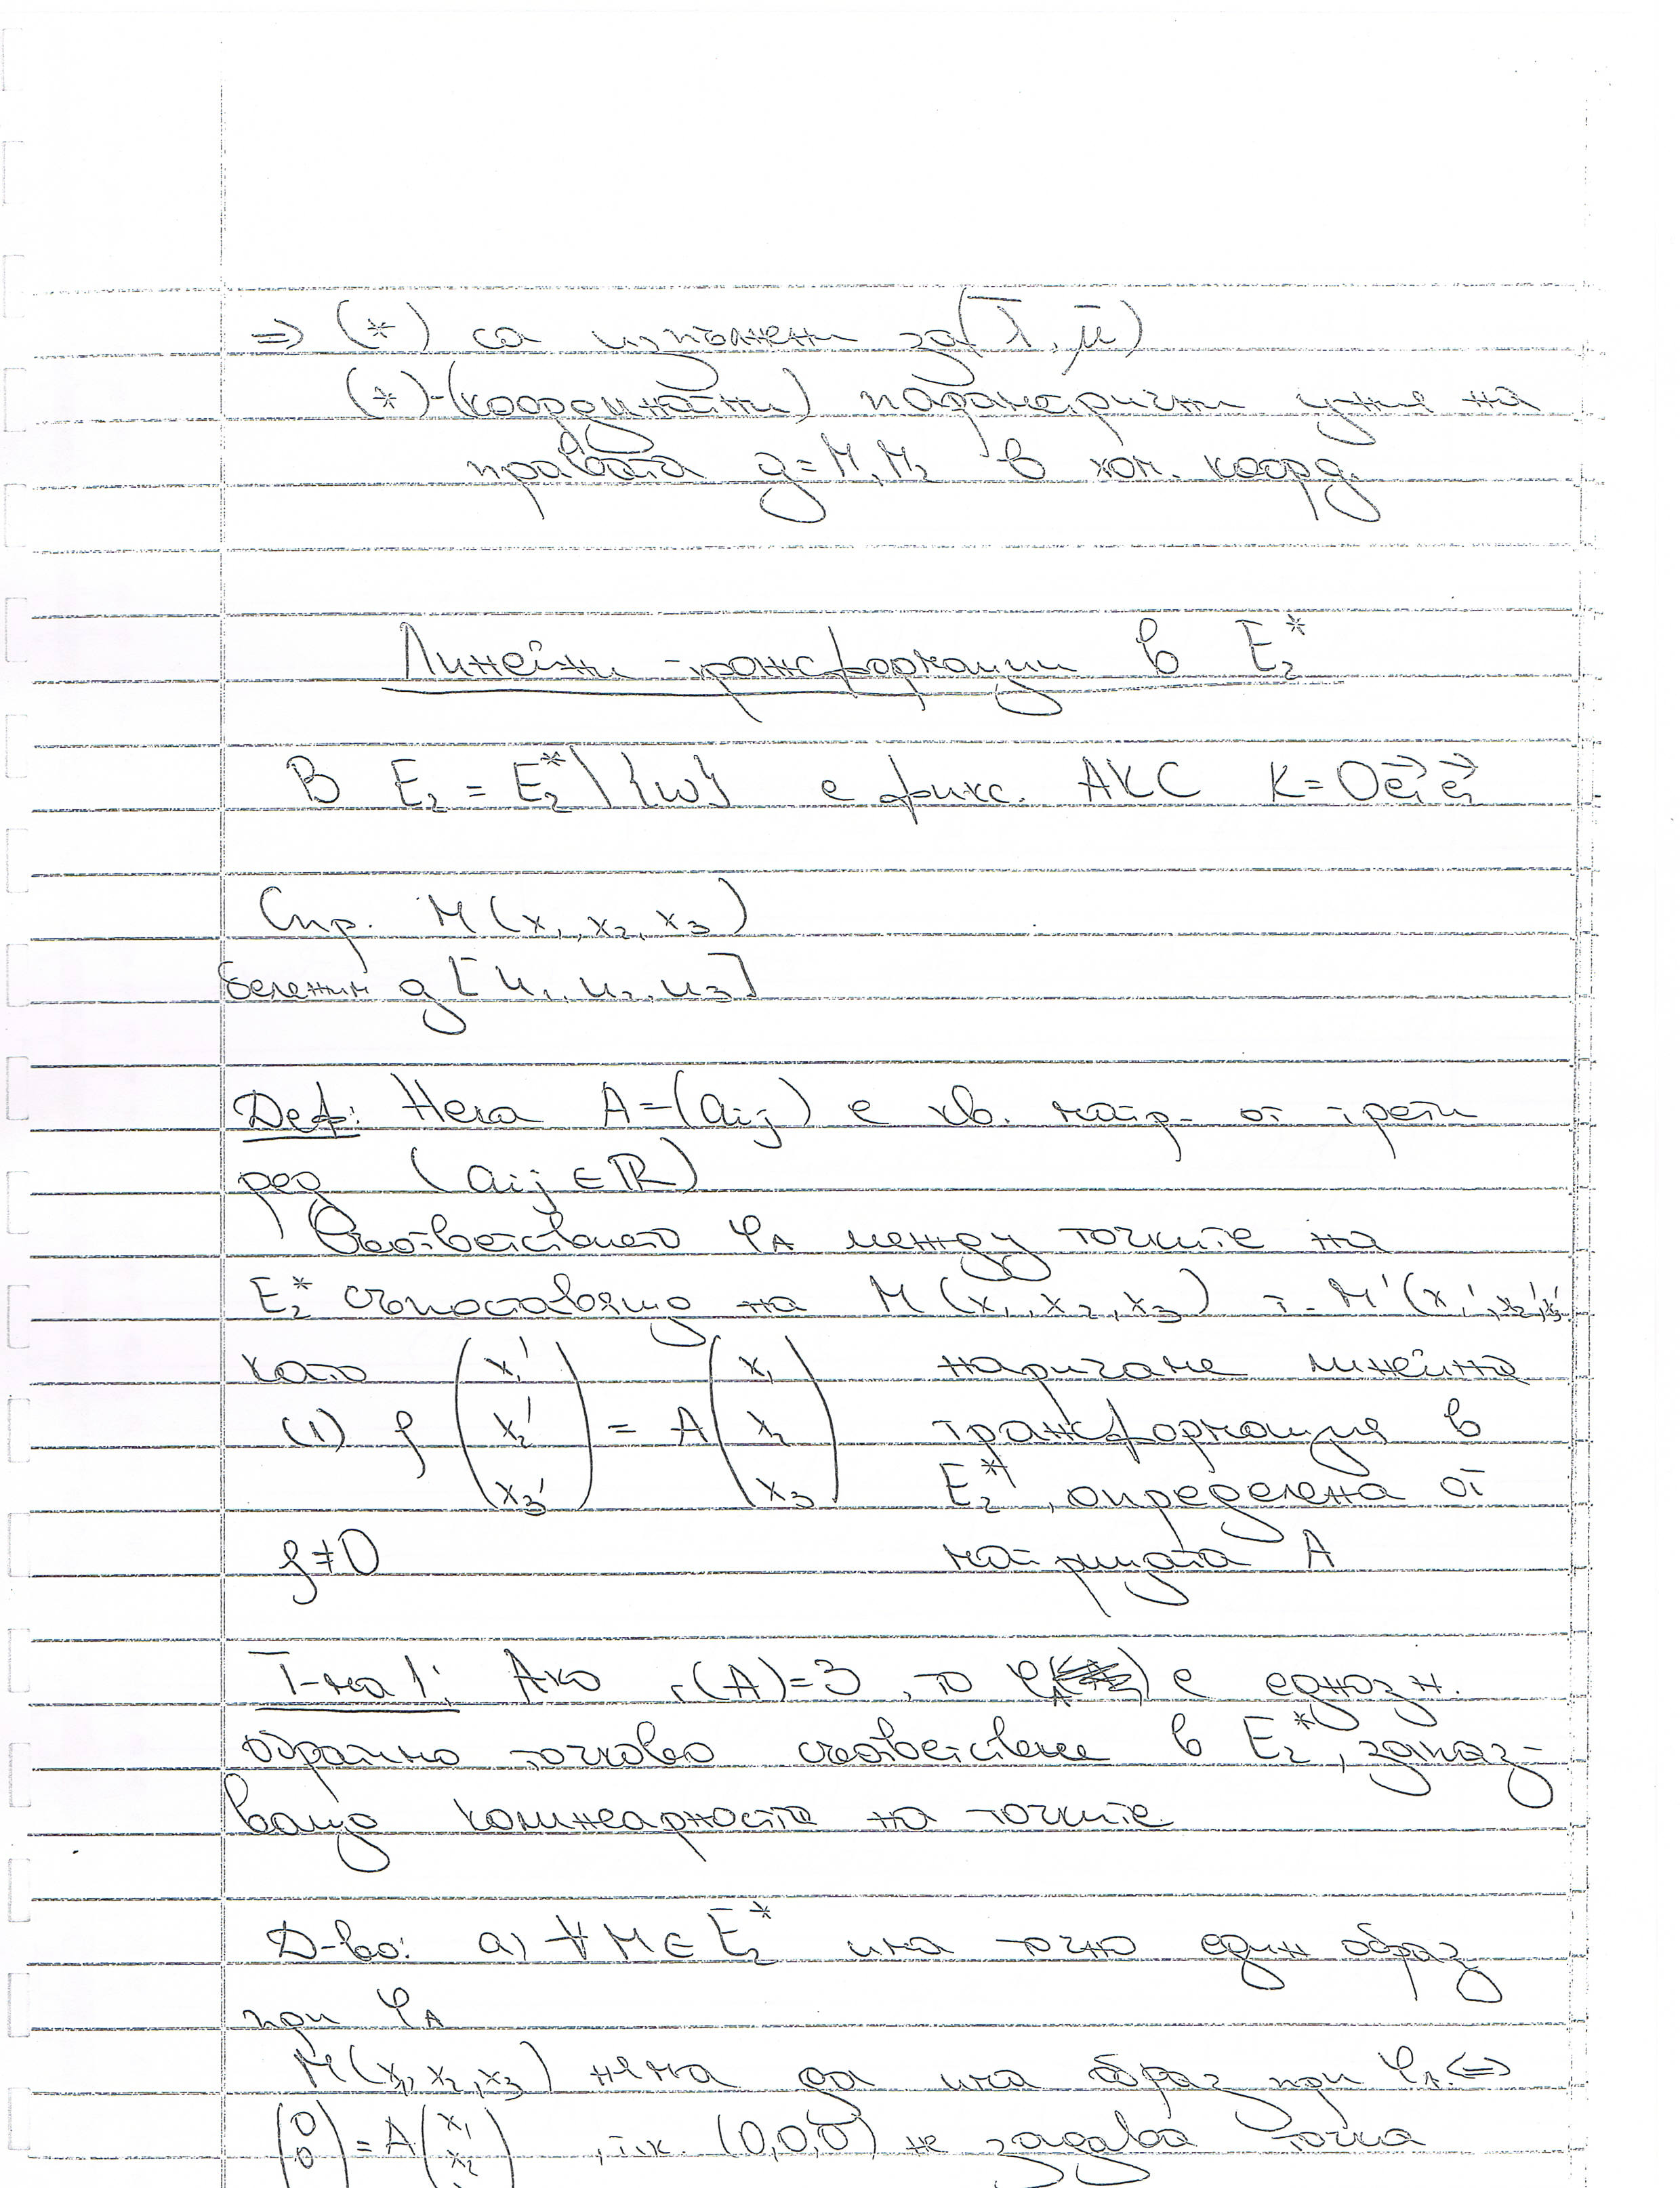 ⇒ (*) са изпълнени за (λ̄, μ̄)
(*)-(координатни) параметрични у-ния на
правата g=M₁M₂ в хом. коорд.
Линейни трансформации в E₂*
В E₂ = E₂* \ {ω} е фикс. АКС K=Oe⃗₁e⃗₁
Спр. M(x₁, x₂, x₃)
бележим g[u₁, u₂, u₃]
Деф: Нека A=(aij) е кв. матр. от трети
ред (aij ∈ ℝ)
Съответствието φA между точките на
E₂* съпоставящо на M(x₁, x₂, x₃) т. M'(x₁', x₂', x₃')
като (x₁' x₂' x₃') = A (x₁ x₂ x₃) наричаме линейна
(1) ρ трансформация в
E₂*, определена от
ρ≠0 матрицата A
Т-ма 1: Ако r(A)=3, то φA е еднозн.
обратимо точково съответствие в E₂*, запаз-
ващо колинеарността на точките
Д-во: а) ∀ M ∈ E₂* има точно един образ
при φA
M(x₁, x₂, x₃) няма да има образ при φA ⇔
(0 0 = A (x₁ x₂ , т.к. (0,0,0) не задава точка